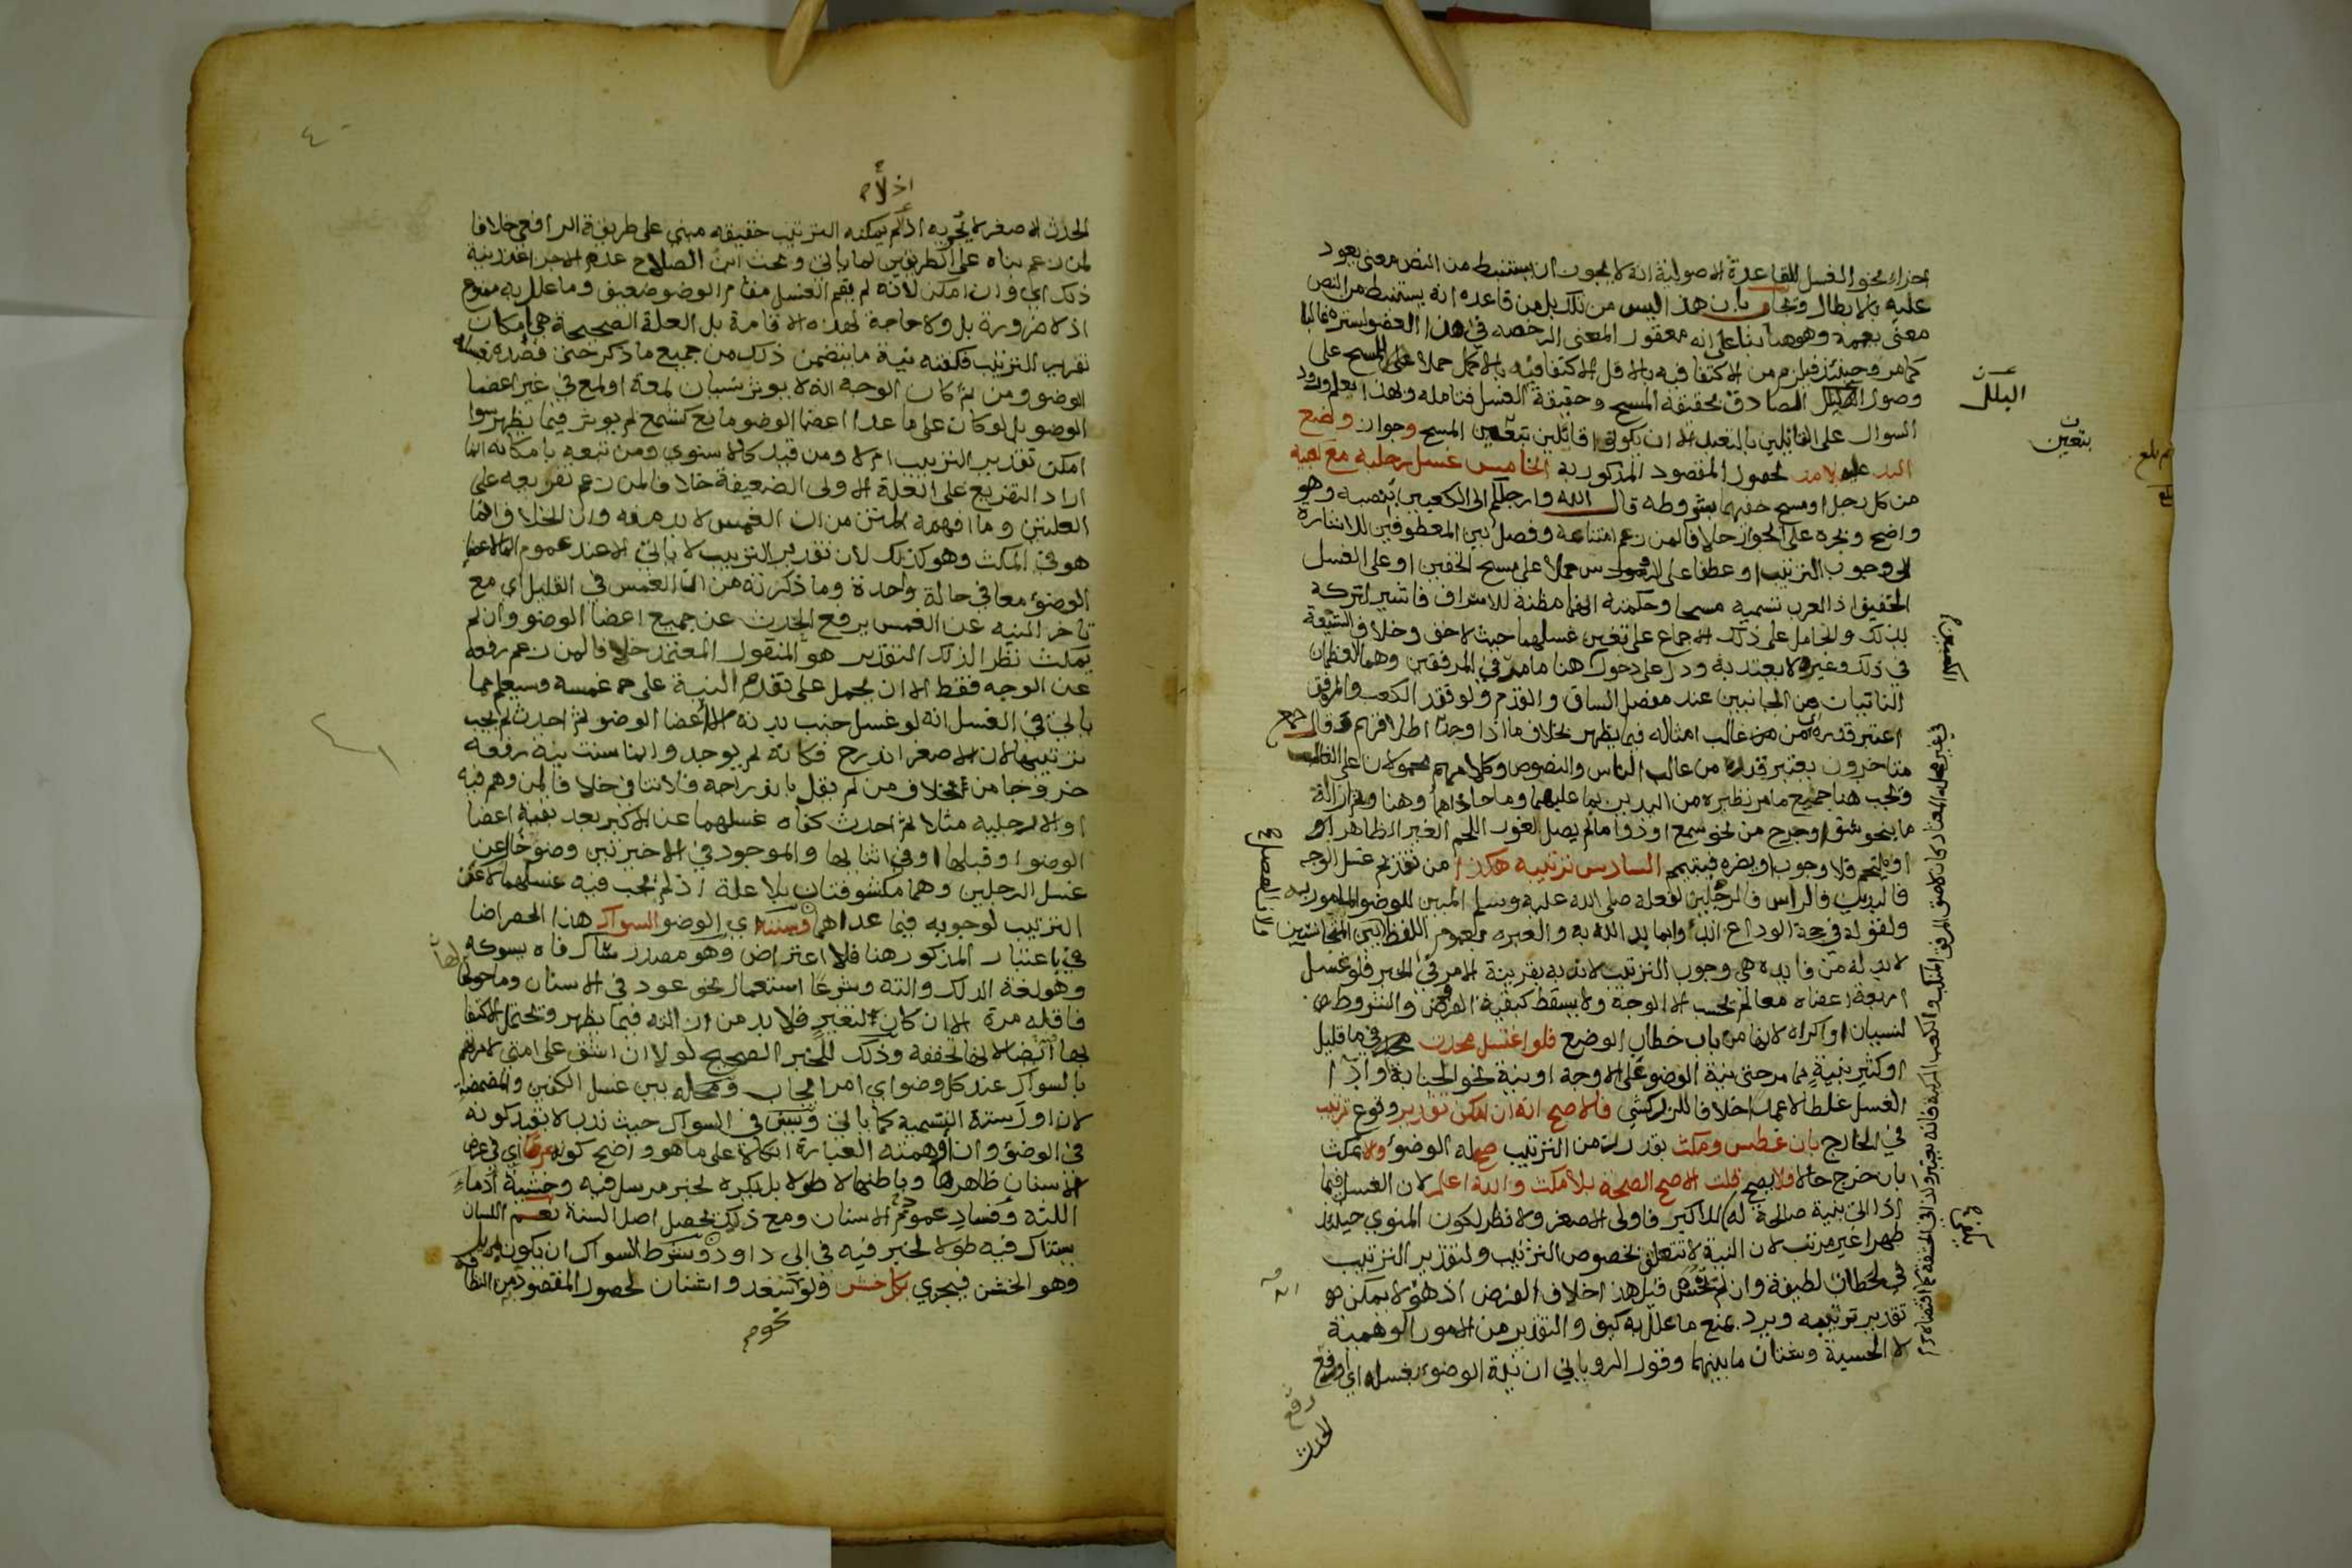 اجزاء نحو الغسل للقاعدة الاصولية انه لا يجوز ان يستنبط من النص معنى يعود
عليه بالابطال ويجاب بان هذا ليس من تلك بل من قاعده انه يستنبط من النص
معنى يعممه وهو هنا بنا على انه معقول المعنى الرخصه في هذا العضو لستره غالبا
كما مر وحينئذ فيلزم من الاكتفا فيه بالاقل الاكتفا فيه بالاكمل حملا على المسح على
وصول البلل الصادق بحقيقة المسح وحقيقة الغسل فتامله وبهذا يعلم ورود
السوال على القائلين بالتعبد الا ان يكونوا قائلين بتعين المسح وجواز وضع
اليد عليه بلا مد لحصول المقصود المذكور به الخامس غسل رجليه مع كعبيه
من كل رجل او مسح خفيهما بشروطه قال الله وارجلكم الى الكعبين بنصبه وهو
واضح وبجره على الجوار خلافا لمن زعم امتناعه وفصل بين المعطوفين للاشارة
الى وجوب الترتيب او عطفا على الروس حملا على مسح الخفين او على الغسل
الخفيف اذ العرب تسميه مسحا وحكمته انها مظنة للاسراف فاشير لتركه
بذلك والحامل على ذلك الاجماع على تعين غسلهما حيث لا خف وخلاف الشيعة
في ذلك وغيره لا يعتد به ودل على دخولك هنا ما مر في المرفقين وهما العظمان
الناتيان من الجانبين عند مفصل الساق والقدم ولو فقد الكعب والمرفق
اعتبر قدره اي من غالب امثاله فيما يظهر بخلاف ما اذا وجدا اطلاقهم وقال جمع
متاخرون يعتبر قدره من غالب الناس والنصوص وكلامهم محمولان على الغالب
ويجب هنا جميع ما مر نظيره من اليدين بما عليهما وما حاذاهما وهنا وثم ازالة
ما بنحو شق او جرح من نحو شمع او دوا ما لم يصل لغور اللحم الغير الظاهر او
او يلتحم فلا وجوب او يضره فيتيمم السادس ترتيبه هكذا من تقديم غسل الوجه
فاليدين فالراس فالرجلين لفعله صلى الله عليه وسلم المبين للوضو المامور به
ولقوله في حجة الوداع ابدؤا بما بدا الله به والعبره بعموم اللفظ بين المتجانسين
لا بد له من فايده هي وجوب الترتيب لا ندبه بقرينة الامر في الخبر فلو غسل
اربعة اعضاه معا لم يحسب الا الوجه ولا يسقط كبقية الفروض والشروط
لنسيان او اكراه لانها من باب خطاب الوضع فلو اغتسل محدث في ما قليل
او كثير بنية مما مر حتى نية الوضو على الاوجه او بنية نحو الجنابة او اذا
الغسل غلطا لا عمدا خلافا للزركشي فالاصح انه ان امكن تقدير وقوع ترتيب
في الخارج بان غطس ومكث بقدر زمن الترتيب صح له الوضوء ولا يمكث
بان خرج حالا فلا يصح قلت الاصح الصحة بلا مكث والله اعلم لان الغسل فيما
اذا اتى بنية صالحة له للاكبر فاولى الاصغر ولا نظر لكون المنوي حينئذ
طهرا غير مرتب لان النية لا تتعلق بخصوص الترتيب ولتقدير الترتيب
في لحظات لطيفة وان لم تحس قيل هذا خلاف الفرض اذ هو لا يمكن هو
تقدير ترتيبه ويرد بمنع ما علل به كيف والتقدير من الامور الوهمية
لا الحسية وشتان ما بينهما وقول الروياني ان نية الوضوء بغسله اي او رفع
رفع
الحدث
البلل
بتعين
اذ لا
الحدث الاصغر لا يجزيه اذ لم يمكنه الترتيب حقيقه مبني على طريقة الرافعي خلافا
لمن زعم بناه على الطريقين لما ياتي وبحث ابن الصلاح عدم الاجزا عند نية
ذلك اي وان امكن لانه لم يقم الغسل مقام الوضو ضعيف وما علل به ممنوع
اذ لا ضرورة بل ولا حاجة لهذه الاقامة بل العلة الصحيحة هي امكان
تقدير الترتيب فكفته نية ما يتضمن ذلك من جميع ما ذكر حتى قصده
الوضو ومن ثم كان الوجه انه لا يوثر نسيان لمعة او لمع في غير اعضا
الوضو بل لو كان على ما عدا اعضا الوضو مانع كشمع لم يوثر فيما يظهر سوا
امكن تقدير الترتيب ام لا ومن قيد كالاسنوي ومن تبعه بامكانه انما
اراد التفريع على العلة الاولى الضعيفة خلافا لمن زعم تفريعه على
العلتين وما افهمه المتن من ان الغمس لا بد منه وان الخلاف انما
هو في المكث وهو كذلك لان تقدير الترتيب لا ياتي الا عند عموم الما لاعضا
الوضوء معا في حالة واحدة وما ذكرته من ان الغمس في القليل اي مع
تاخر النيه عن الغمس يرفع الحدث عن جميع اعضا الوضو وان لم
يمكث نظرا لذلك التقدير هو المنقول المعتمد خلافا لمن زعم رفعه
عن الوجه فقط الا ان يحمل على تقدم النية على غمسه وسيعلم مما
ياتي في الغسل انه لو غسل جنب بدنه الا اعضا الوضو ثم احدث لم يجب
ترتيبها لان الاصغر اندرج فكانه لم يوجد وانما سنت نية رفعه
خروجا من خلاف من لم يقل باندراجه فلا تنافي خلافا لمن وهم فيه
او الا رجليه مثلا ثم احدث كفاه غسلهما عن الاكبر بعد بقية اعضا
الوضو او قبلها او في اثنائها والموجود في الاخيرتين وضو خال عن
غسل الرجلين وهما مكشوفتان بلا علة اذ لم يجب فيه غسلهما لا عن
الترتيب لوجوبه فيما عداهما وسننه اي الوضو السواك هذا الحصر اضا
في باعتبار المذكور هنا فلا اعتراض وهو مصدر ساك فاه يسوكه
وهو لغة الدلك والته وشرعا استعمال نحو عود في الاسنان وما حولها
فاقله مرة الا ان كان لتغير فلا بد من ازالته فيما يظهر ويحتمل الاكتفا
بها ايضا لانها تخففه وذلك للخبر الصحيح لولا ان اشق على امتي لامرتهم
بالسواك عند كل وضو اي امر ايجاب ومحله بين غسل الكفين والمضمضة
لان اول سننه التسمية كما ياتي ويسن في السواك حيث ندب لا بقيد كونه
في الوضوء وان اوهمته العبارة اتكالا على ما هو واضح كونه عرضا اي في عرض
الاسنان ظاهرها وباطنها لا طولا بل يكره لخبر مرسل فيه وخشية ادماء
اللثة وفساد عمور الاسنان ومع ذلك يحصل اصل السنة نعم اللسان
يستاك فيه طولا لخبر فيه في ابي داود وشرط السواك ان يكون
وهو الخشن فيجزي بكل خشن ولو سعد واشنان لحصول المقصود به من النظافة
نحوه